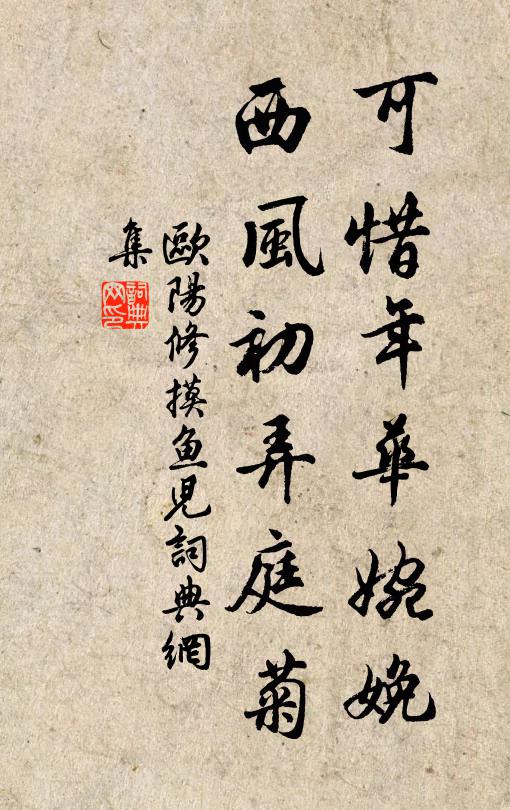 可惜年華婉娩
西風初弄庭菊
歐陽修摸魚児詞典網
集
詞典
网印